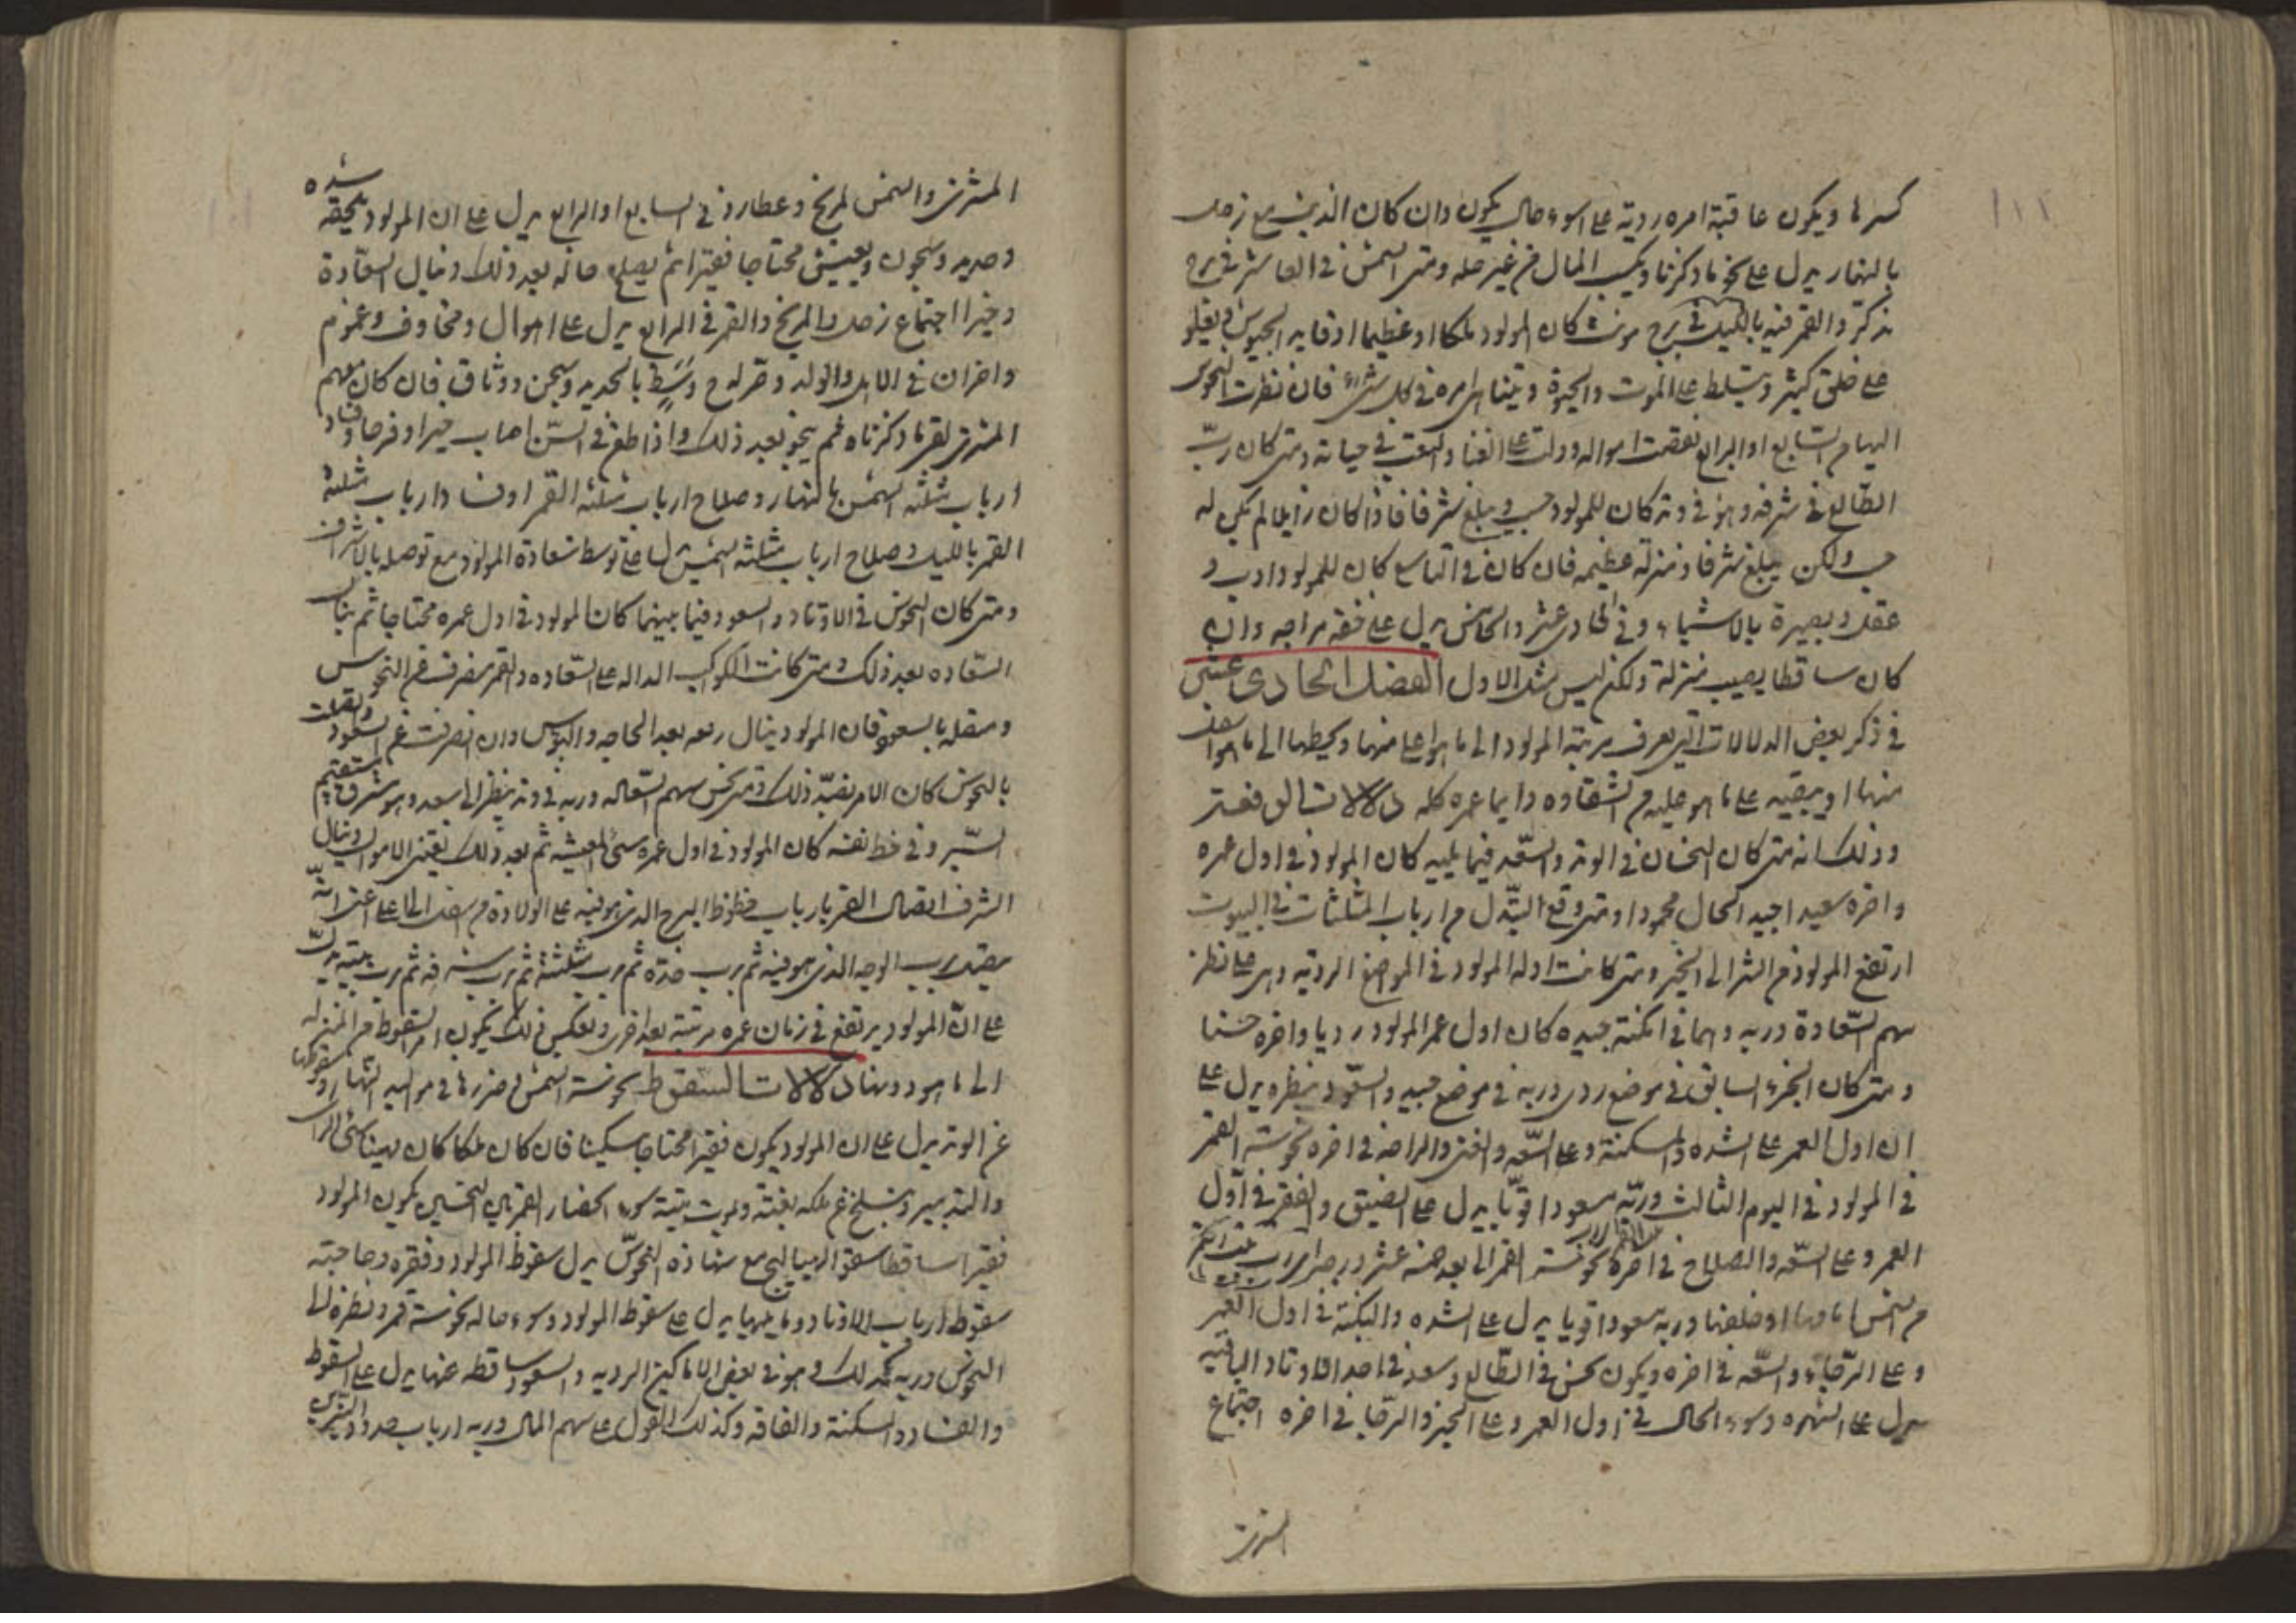 كسرها ويكون عاقبة امره ردية على اسوء حال يكون وان كان الذنب مع زحل
بالنهار يدل على نحو ما ذكرنا ويكسب المال من غير حله ومتى الشمس في العاشر في برج
مذكر والقمر فيه بالليل في برج مونث كان المولود ملكا او عظيما او قايد الجيوش ويعلو
على خلق كثير ويتسلط على الموت والحيوة ويتناهى امره في كل شيء فان نظرت النحوس
اليها من السابع او الرابع نقصت امواله ودلت على العنا والتعب في حياته ومتى كان رب
الطالع في شرفه وهو في وتد كان للمولود حسب ويبلغ شرفا فاذا كان زايلا لم يكن له
حسب ولكن يبلغ شرفا ومنزلة عظيمه فان كان في التاسع كان للمولود ادب و
عقل وبصيرة بالاشياء وفي الحادى عشر والخامس يدل على وان
كان ساقطا يصيب منزلة ولكن ليس مثل الاول الفصل الحادى عشر
في ذكر بعض الدلالات التي تعرف مرتبة المولود الى ما هو اعلى منها ويحطها الى ما هو اسفل
منها او يبقيه على ما هو عليه من السعاده دايما عمره كله دلالات الرفعة
وذلك انه متى كان النحسان في الوتد والسعد فيما يليه كان المولود في اول عمره
واخره سعيدا جيد الحال محمودا ومتى وقع التبدل من ارباب المثلثات في البيوت
ارتفع المولود من الشر الى الخير ومتى كانت ادلة المولود في المواضع الردية وهى على نظر
سهم السعادة وربه وهما في امكنة جيده كان اول عمر المولود رديا واخره حسنا
ومتى كان الجزء السابق في موضع ردى وربه في موضع جيد والسعود ينظره يدل على
ان اول العمر على الشده والمسكنة وعلى السعه والغنى والراحه في اخره نحوسة القمر
في المولود في اليوم الثالث وربه مسعودا قويا يدل على الضيق والفقر في اول
العمر وعلى السعه والصلاح في اخره نحوسة القمر الى بعد خمسة عشر درجة
من الشمس امامها او خلفها وربه مسعودا قويا يدل على الشده والنكبة في اول العمر
وعلى الرخاء والسعه في اخره ويكون نحس في الطالع وسعد في احد الاوتاد الباقيه
يدل على الشهره وسوء الحال في اول العمر وعلى الخير والرخا في اخره اجتماع
المشترى
المشترى والشمس المريخ وعطارد في السابع او الرابع يدل على ان المولود يلحقه شده
وحديد وسجون ويعيش محتاجا فقيرا ثم يصلح حاله بعد ذلك وينال السعادة
وخيرا اجتماع زحل والمريخ والقمر في الرابع يدل على اهوال ومخاوف وغموم
واحزان في الاهل والولد وبالحديد وسجن ووثاق فان كان معهم
المشترى لقى ما ذكرناه ثم ينجو بعد ذلك واذا طعن في السن اصاب خيرا وفرحا وفساد
ارباب مثلثه الشمس بالنهار وصلاح ارباب مثلثه القمر او فساد ارباب مثلثه
القمر بالليل وصلاح ارباب مثلثه الشمس يدل على توسط سعادة المولود مع توصله بالاشراف
ومتى كان النحوس في الاوتاد والسعود فيما بينهما كان المولود في اول عمره محتاجا ثم ينال
السعاده بعد ذلك ومتى كانت الكواكب الداله على السعاده والقمر منصرف عن النحوس
ومتصله بالسعود فان المولود ينال رفعه بعد الحاجه والبؤس وان انصرفت عن السعود واتصلت
بالنحوس كان الامر بضد ذلك ومتى نحس سهم السعاده وربه في وتد ينظر الى سعد وهو مشرق مستقيم
السير وفي حظ نفسه كان المولود في اول عمره سيئ المعيشه ثم بعد ذلك يقتنى الاموال وينال
الشرف اتصال القمر بارباب حظوظ البرج الذى هو فيه على الولادة من اسفل الى اعلى اعنى انه
يتصل برب الوجه الذى هو فيه ثم برب حده ثم برب مثلثته ثم برب شرفه ثم برب بيته يدل
على ان المولود يرتفع في زمان عمره مرتبة بعد اخرى وبعكس ذلك يكون امر السقوط من المنزله
الى ما هو دونها دلالات السقوط نحوسة الشمس وضررها في مواليد النهار وسقوطها
عن الوتد يدل على ان المولود يكون فقيرا محتاجا مسكينا فان كان ملكا كان مهينا سيئ الراى
والتدبير وينسلخ عن ملكه بغتة ويموت ميتة سوء انحصار القمر بين النحسين يكون المولود
فقيرا ساقطا سقوط الهيلاج مع شهادة النحوس يدل سقوط المولود وفقره وحاجته
سقوط ارباب الاوتاد وما يليها يدل على سقوط المولود وسوء حاله نحوسة قمر ونظره الى
النحوس وربه كذلك وهو في بعض الاماكن الرديه والسعود ساقطه عنها يدل على السقوط
والفساد والمسكنة والفاقه وكذلك القول على سهم المال وربه ارباب حدود النيرين